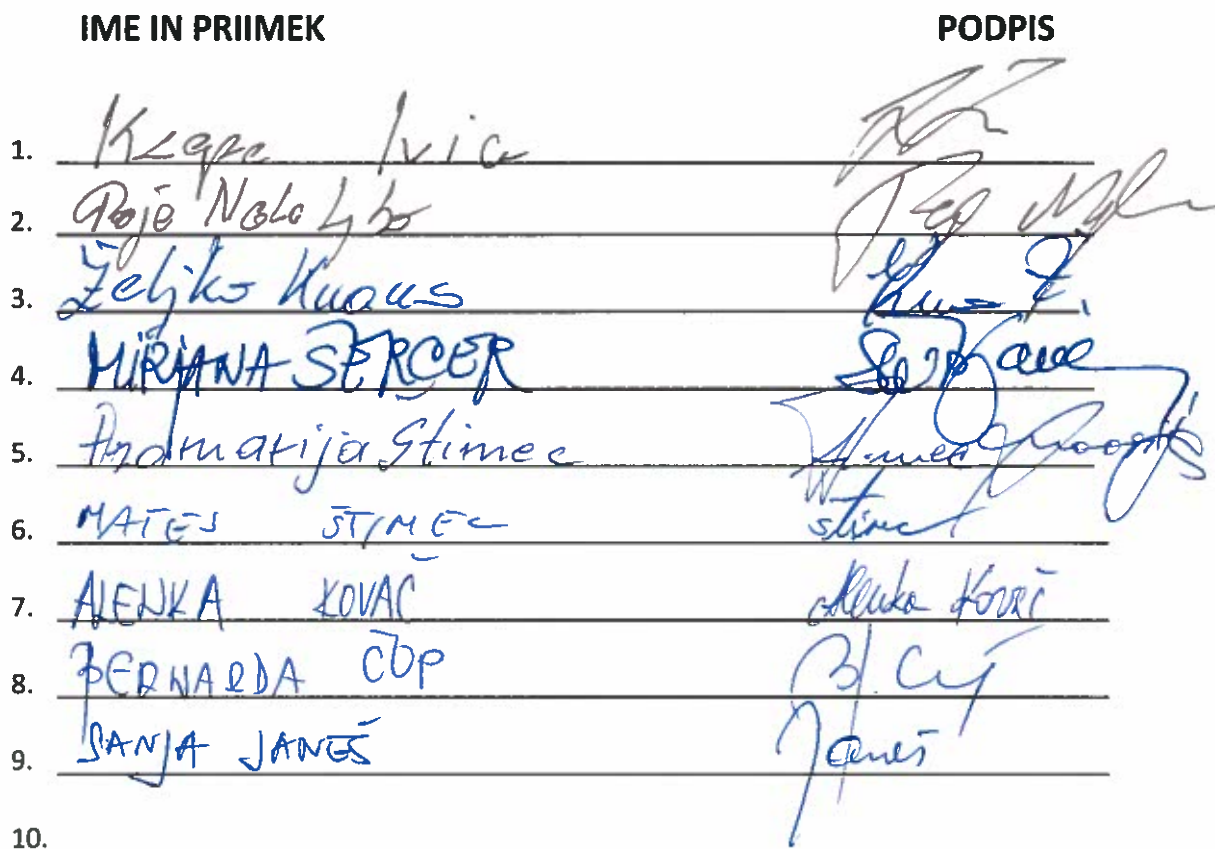 IME IN PRIIMEK PODPIS
1. Ivica
2. Poje
3. Željko Knaus
4. MIRJANA ŠERCER
5. Anamarija Štimec
6. MATEJ ŠTIMEC štimc
7. ALENKA KOVAČ Alenka Kovač
8. BERNARDA ČOP B. Čop
9. SANJA JANEŠ Janeš
10.